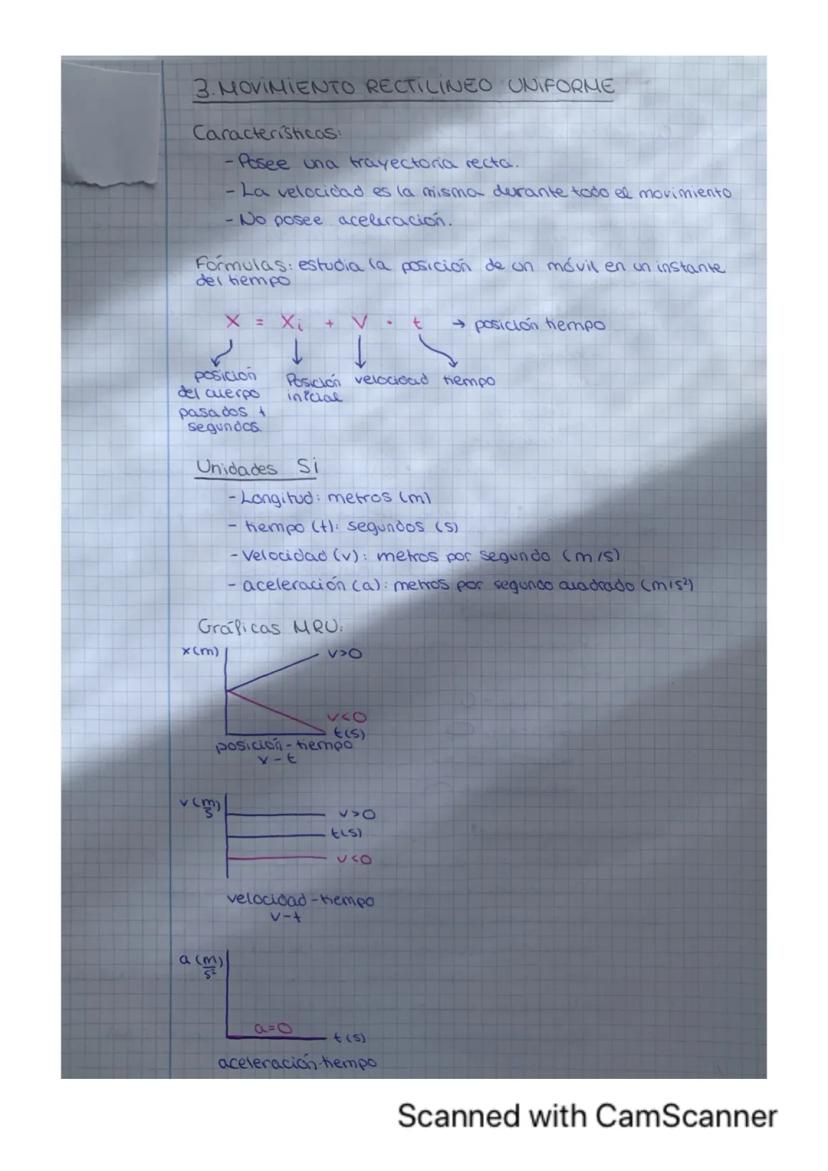 3. MOVIMIENTO RECTILÍNEO UNIFORME
Características:
- Posee una trayectoria recta.
- La velocidad es la misma durante todo el movimiento
- No posee aceleración.
Fórmulas: estudia la posición de un móvil en un instante
del tiempo
X = Xi + V · t → posición tiempo
posición
del cuerpo
pasados t
segundos.
Posición
inicial
velocidad
tiempo
Unidades Si
- Longitud: metros (m)
- tiempo (t): segundos (s)
- Velocidad (v): metros por segundo (m/s)
- aceleración (a): metros por segundo cuadrado (m/s²)
Gráficas MRU:
x(m)
v>0
v<0
t(s)
posición - tiempo
v-t
v (m/s)
v>0
t(s)
v<0
velocidad - tiempo
v-t
a (m/s²)
a=0
t(s)
aceleración-tiempo
Scanned with CamScanner